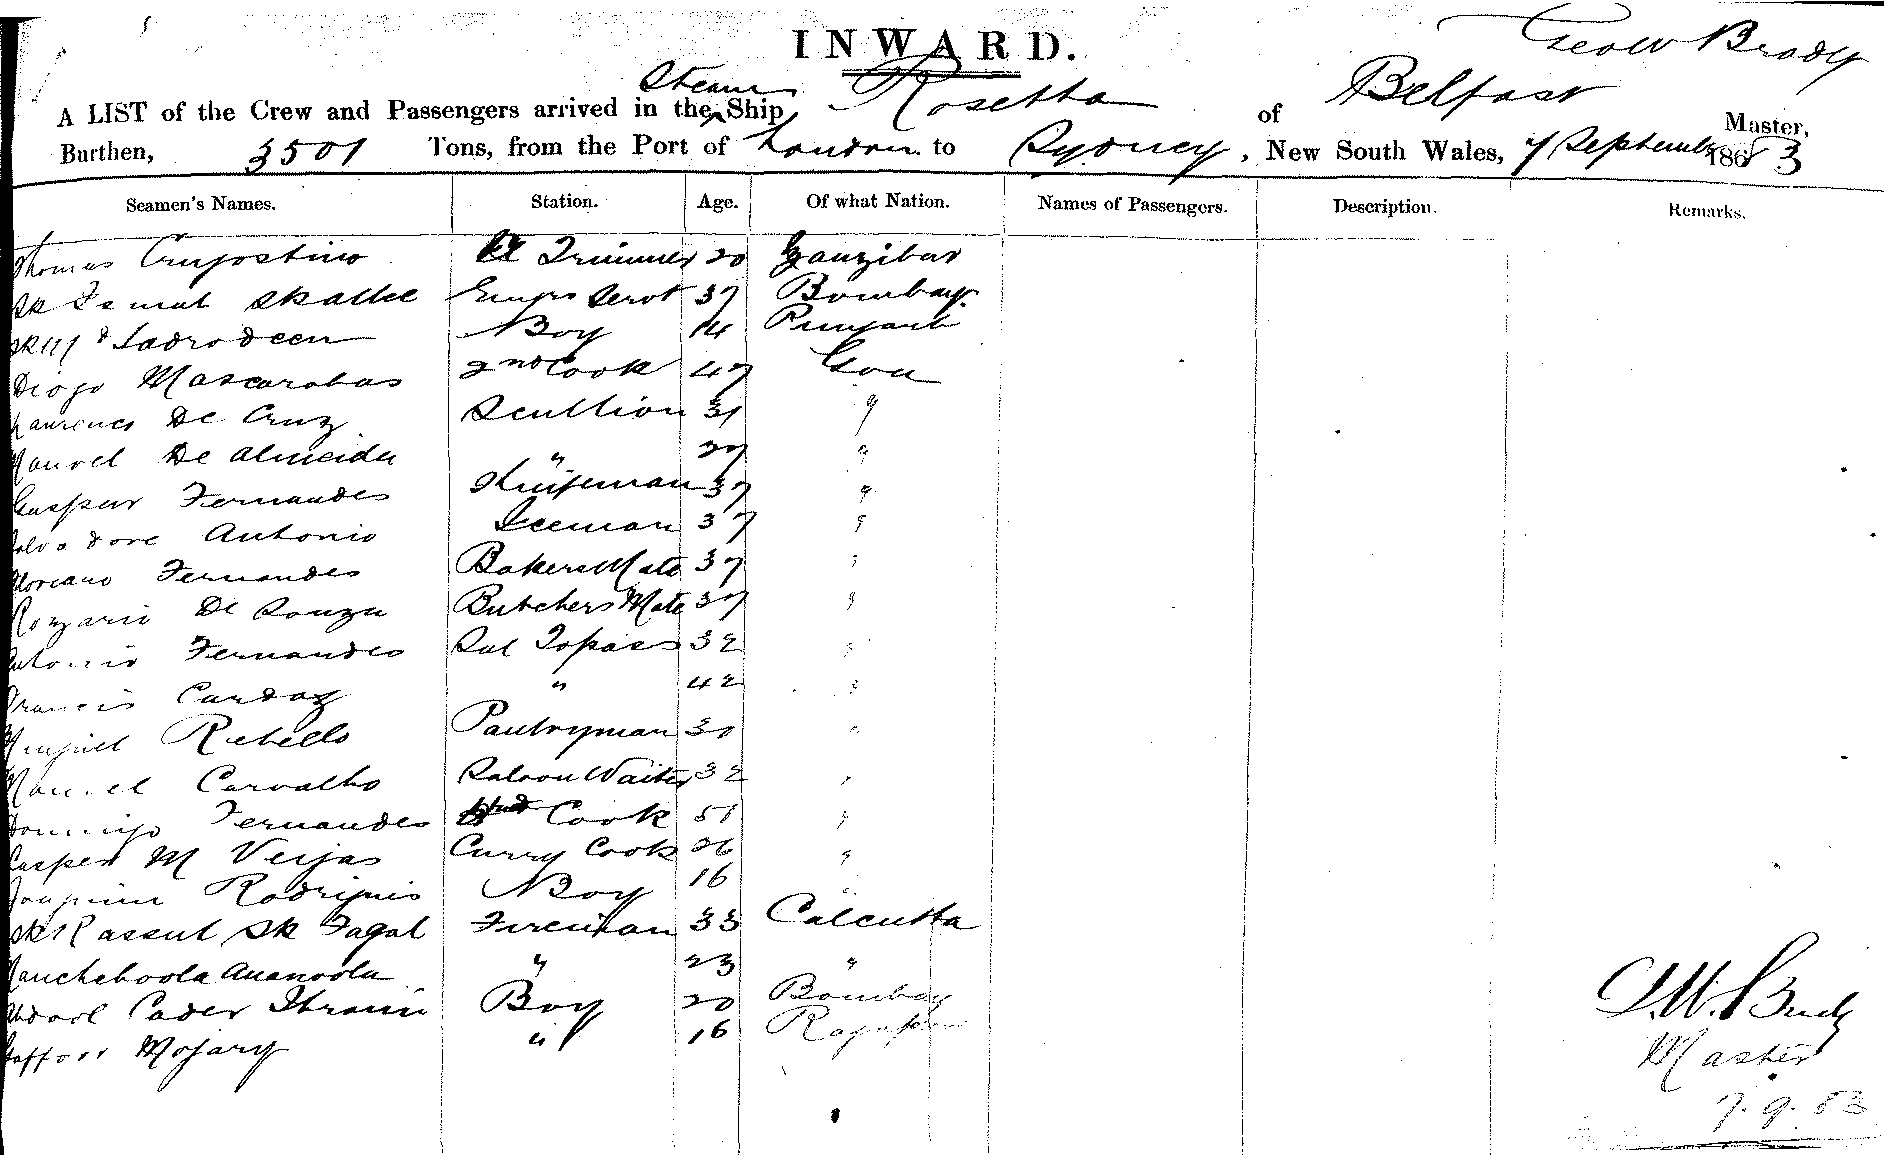 INWARD.
Geo W Brady
A LIST of the Crew and Passengers arrived in the Steam Ship Rosetta of Belfast Master,
Burthen, 3501 Tons, from the Port of London to Sydney, New South Wales, 7 September 1883
Seamen's Names. Station. Age. Of what Nation. Names of Passengers. Description. Remarks.
Thomas Trimmer 20 Zanzibar
Sk Ismal Engrs Servt 37 Bombay
Sadrodeen Boy 14
Diogo Mascarabas 2nd Cook 47 Goa
Laurence De Cruz Scullion 31 "
Manoel De Almeida " 27 "
Gaspar Fernandes 37 "
Salvadore Antonio Iceman 37 "
Floriano Fernandes Bakers Mate 37 "
Rozario De Souza Butchers Mate 37 "
Antonio Fernandes Sal Topass 32 "
Francis Cardoz " 42 "
Minguel Rebello Pantryman 30 "
Manuel Carvalho Saloon Waiter 32 "
Domingo Fernandes Cook 51 "
Casper M Veijas Curry Cook 26 "
Joaquim Rodriguis Boy 16 "
Sk Rassul Sk Fagal Fireman 33 Calcutta
" 23 "
Abdool Cader Ibraim Boy 20 Bombay
Gaffoor " 16
G.W. Brady
Master
7.9.83